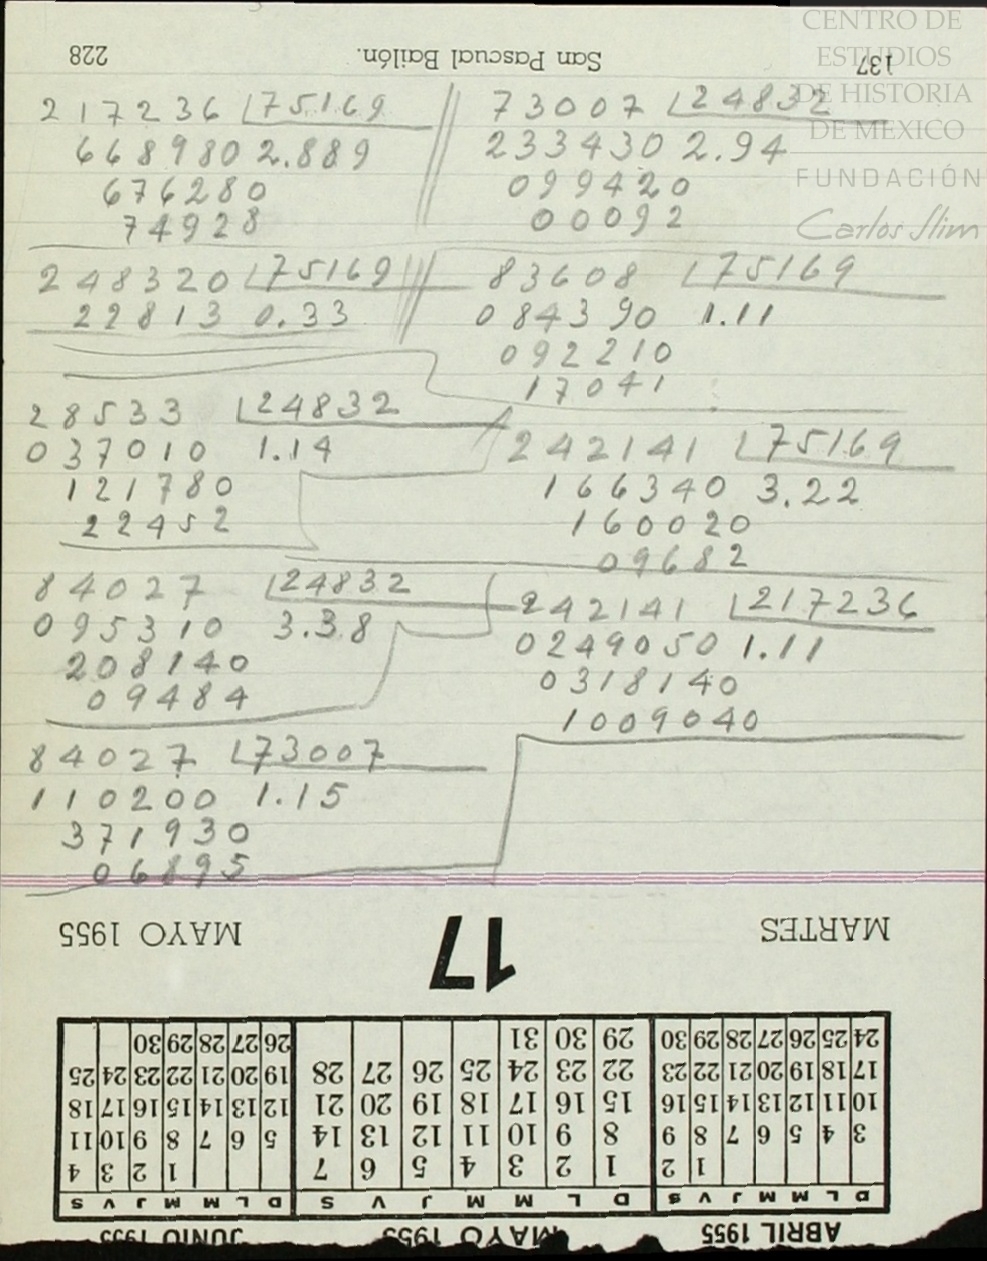 CENTRO DE
ESTUDIOS
DE HISTORIA
DE MEXICO
FUNDACIÓN
Carlos Slim
228 San Pascual Bailón. 137
217236 75169
668980 2.889
676280
74928
73007 24832
233430 2.94
099420
00092
248320 75169
22813 0.33
83608 75169
084390 1.11
092210
17041
28533 24832
037010 1.14
121780
22452
242141 75169
166340 3.22
160020
09682
84027 24832
095310 3.38
208140
09484
242141 217236
0249050 1.11
0318140
1009040
84027 73007
110200 1.15
371930
06895
MARTES 17 MAYO 1955
ABRIL 1955
D L M M J V S
1 2
3 4 5 6 7 8 9
10 11 12 13 14 15 16
17 18 19 20 21 22 23
24 25 26 27 28 29 30
MAYO 1955
D L M M J V S
1 2 3 4 5 6 7
8 9 10 11 12 13 14
15 16 17 18 19 20 21
22 23 24 25 26 27 28
29 30 31
JUNIO 1955
D L M M J V S
1 2 3 4
5 6 7 8 9 10 11
12 13 14 15 16 17 18
19 20 21 22 23 24 25
26 27 28 29 30